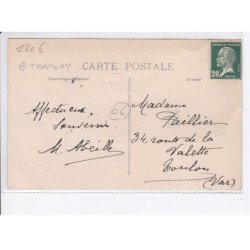 120 €
@ TRAMWAY
CARTE POSTALE
Correspondance
Adresse
20
Affectueux
Souvenir
M. Abeille
06
Madame
Paillier
34, route de la
Valette
Toulon
(Var)